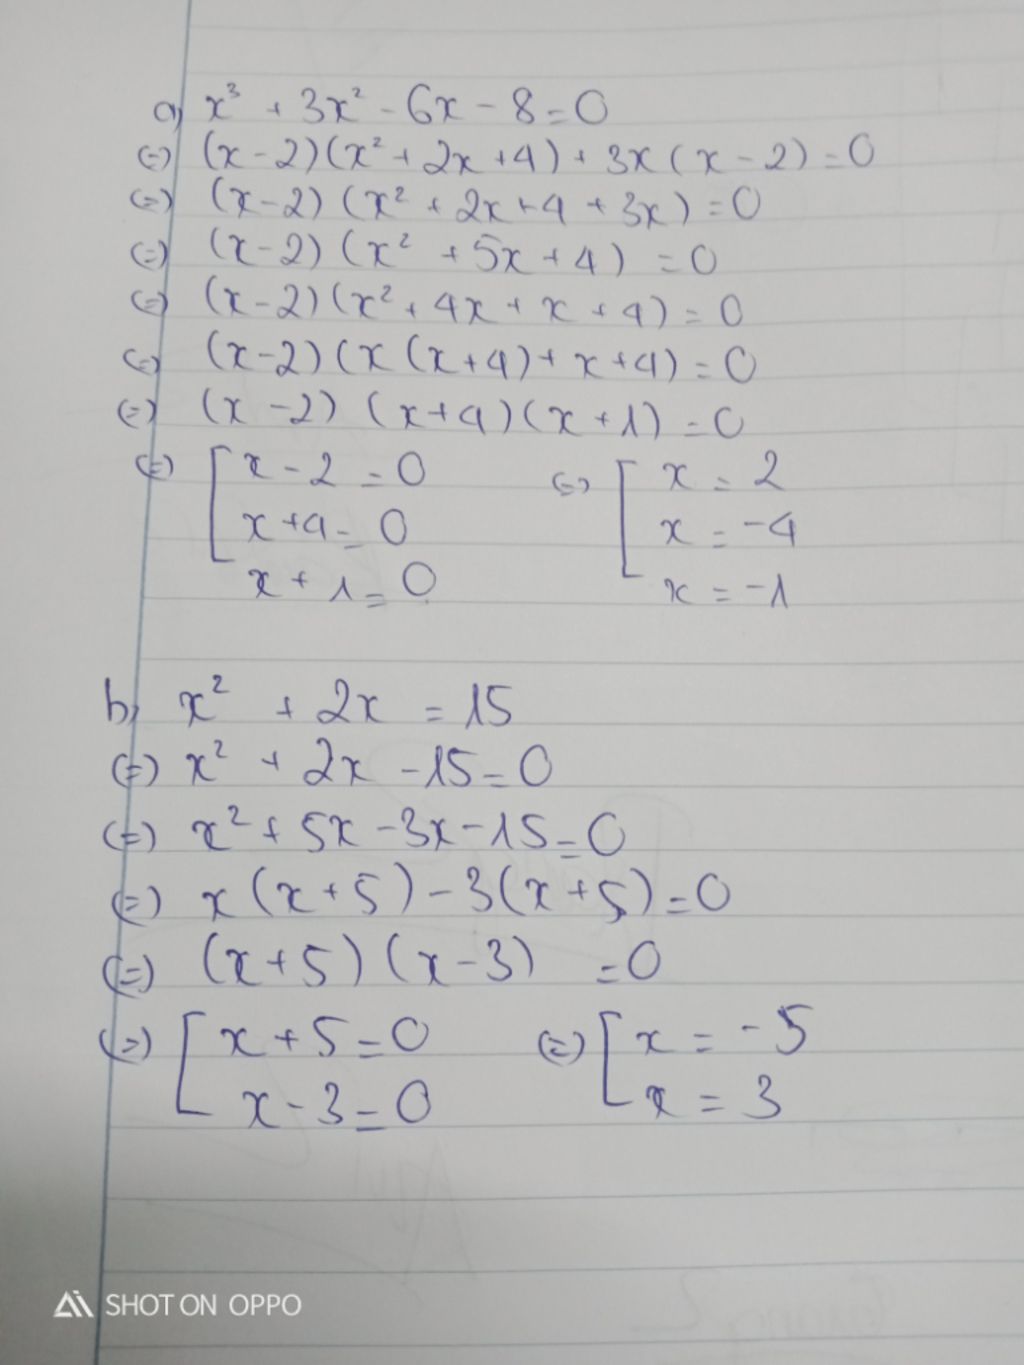 a) x³ + 3x² - 6x - 8 = 0
(=) (x-2)(x² + 2x + 4) + 3x(x-2) = 0
(=) (x-2)(x² + 2x + 4 + 3x) = 0
(=) (x-2)(x² + 5x + 4) = 0
(=) (x-2)(x² + 4x + x + 4) = 0
(=) (x-2)(x(x+4) + x+4) = 0
(=) (x-2)(x+4)(x+1) = 0
(=) [ x - 2 = 0 (=) [ x = 2
x + 4 = 0 x = -4
x + 1 = 0 x = -1
b) x² + 2x = 15
(=) x² + 2x - 15 = 0
(=) x² + 5x - 3x - 15 = 0
(=) x(x+5) - 3(x+5) = 0
(=) (x+5)(x-3) = 0
(=) [ x + 5 = 0 (=) [ x = -5
x - 3 = 0 x = 3
SHOT ON OPPO